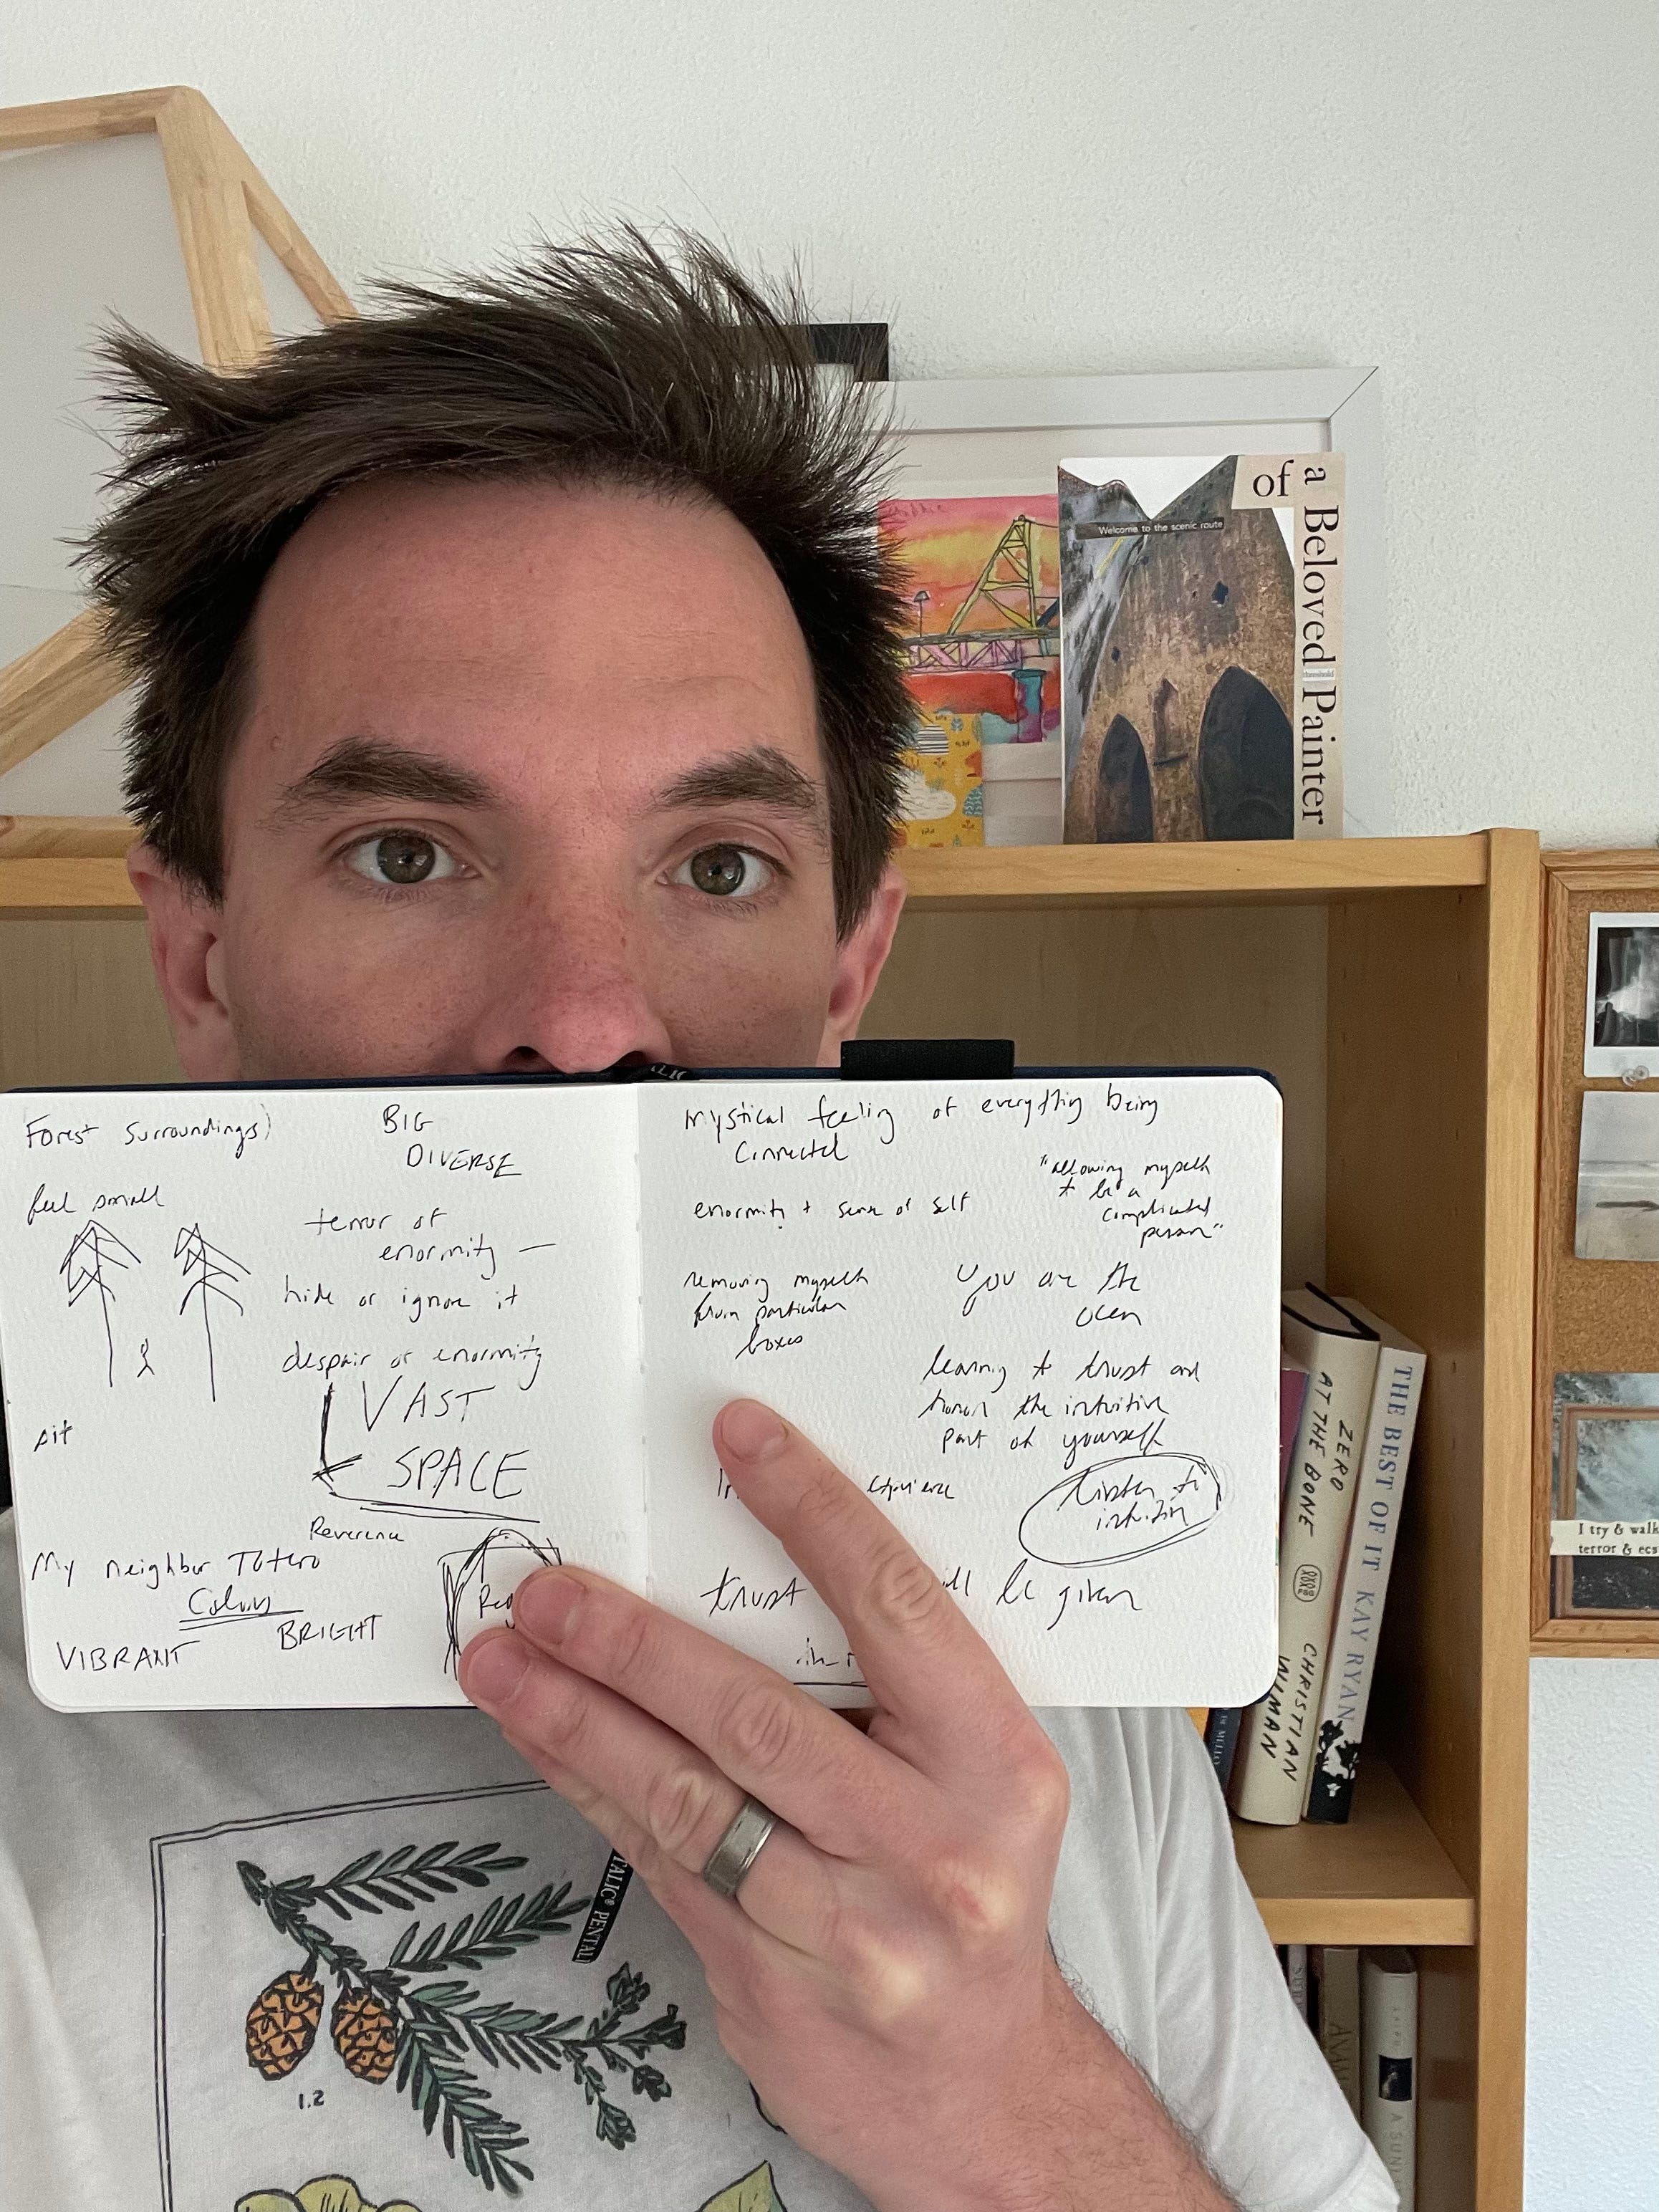 of
a Beloved Painter
Welcome to the scenic route
threshold
Forest Surroundings)
BIG
DIVERSE
feel small
terror of
enormity —
hide or ignore it
despair of enormity
VAST
SPACE
sit
Reverence
My neighbor Totoro
Colors
BRIGHT
VIBRANT
Mystical feeling of everything being
Connected
"allowing myself
to be a
complicated
person"
enormity + sense of self
removing myself
from particular
boxes
You are the
ocean
learning to trust and
honor the intuitive
part of yourself
experience
Listen to
intuition
trust
be given
ZERO
AT THE BONE
CHRISTIAN
WIMAN
THE BEST OF IT KAY RYAN
I try & walk
terror & ecs
TALIC® PENTAL
1.2